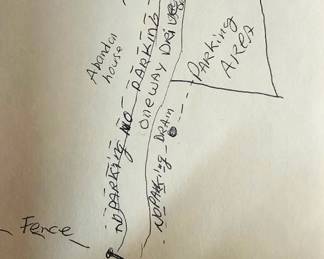 Abandon
house
NO PARKING NO PARKING
ONEWAY DRIVE
PARKING
AREA
NO PARKING DRAIN
Fence